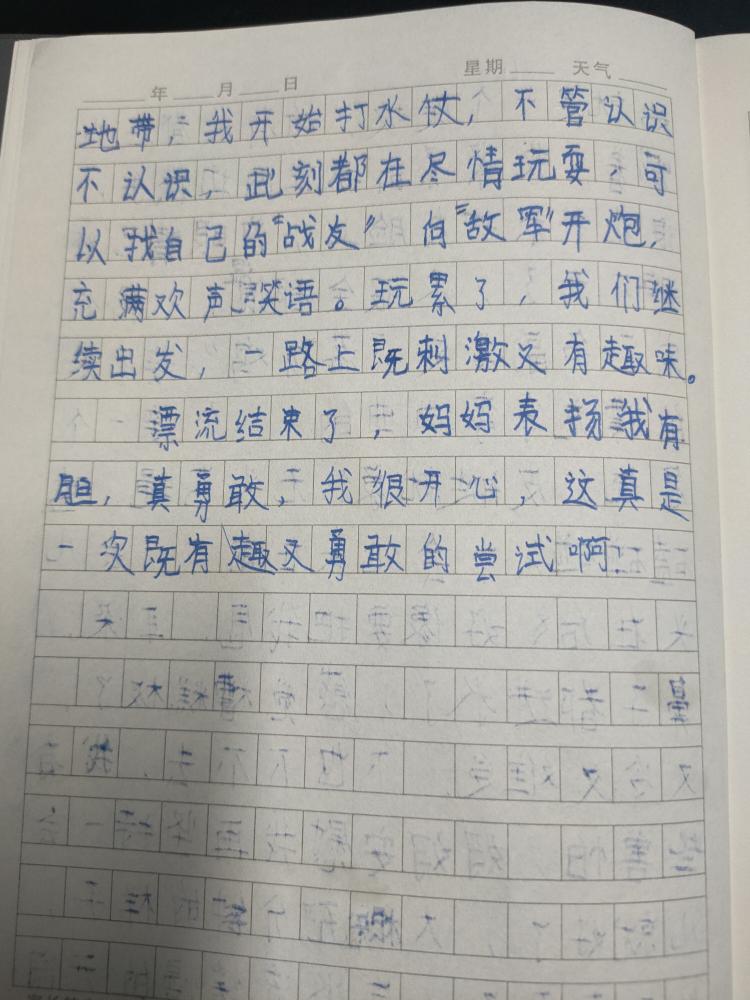 年 月 日 星期 天气
地带，我开始打水仗，不管认识
不认识，此刻都在尽情玩耍，可
以找自己的“战友”向“敌军”开炮，
充满欢声笑语。玩累了，我们继
续出发，一路上既刺激又有趣味。
漂流结束了，妈妈表扬我有
胆，真勇敢，我很开心，这真是
一次既有趣又勇敢的尝试啊！